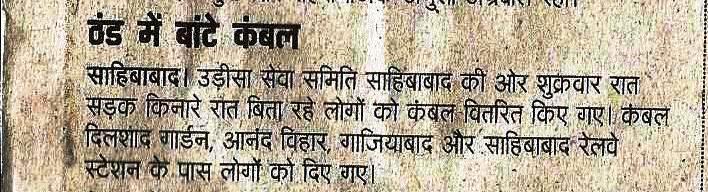 ठंड में बांटे कंबल
साहिबाबाद। उड़ीसा सेवा समिति साहिबाबाद की ओर शुक्रवार रात
सड़क किनारे रात बिता रहे लोगों को कंबल वितरित किए गए। कंबल
दिलशाद गार्डन, आनंद विहार, गाजियाबाद और साहिबाबाद रेलवे
स्टेशन के पास लोगों को दिए गए।